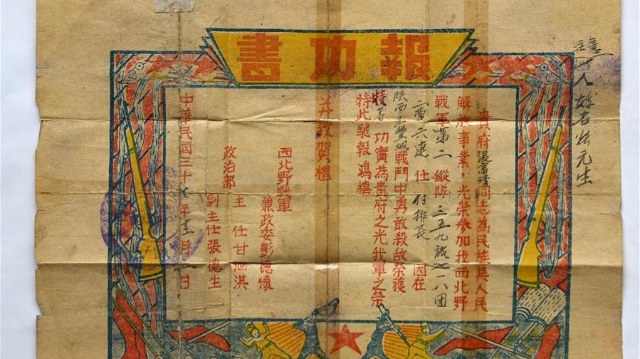 報功書
貴府張富清同志為民族與人民
解放事業，光榮參加我西北野
戰軍第二縱隊三五九旅七一八團
二营六連任付排長因在
陕西永豐城戰鬥中勇敢殺敵榮獲
特等功實為貴府之光我軍之榮
特此馳報鴻禧
并致賀禮
西北野戰軍
兼政委彭德懷
政治部
主任甘泗淇
副主任張德生
中華民國三十七年十二月 日
注意